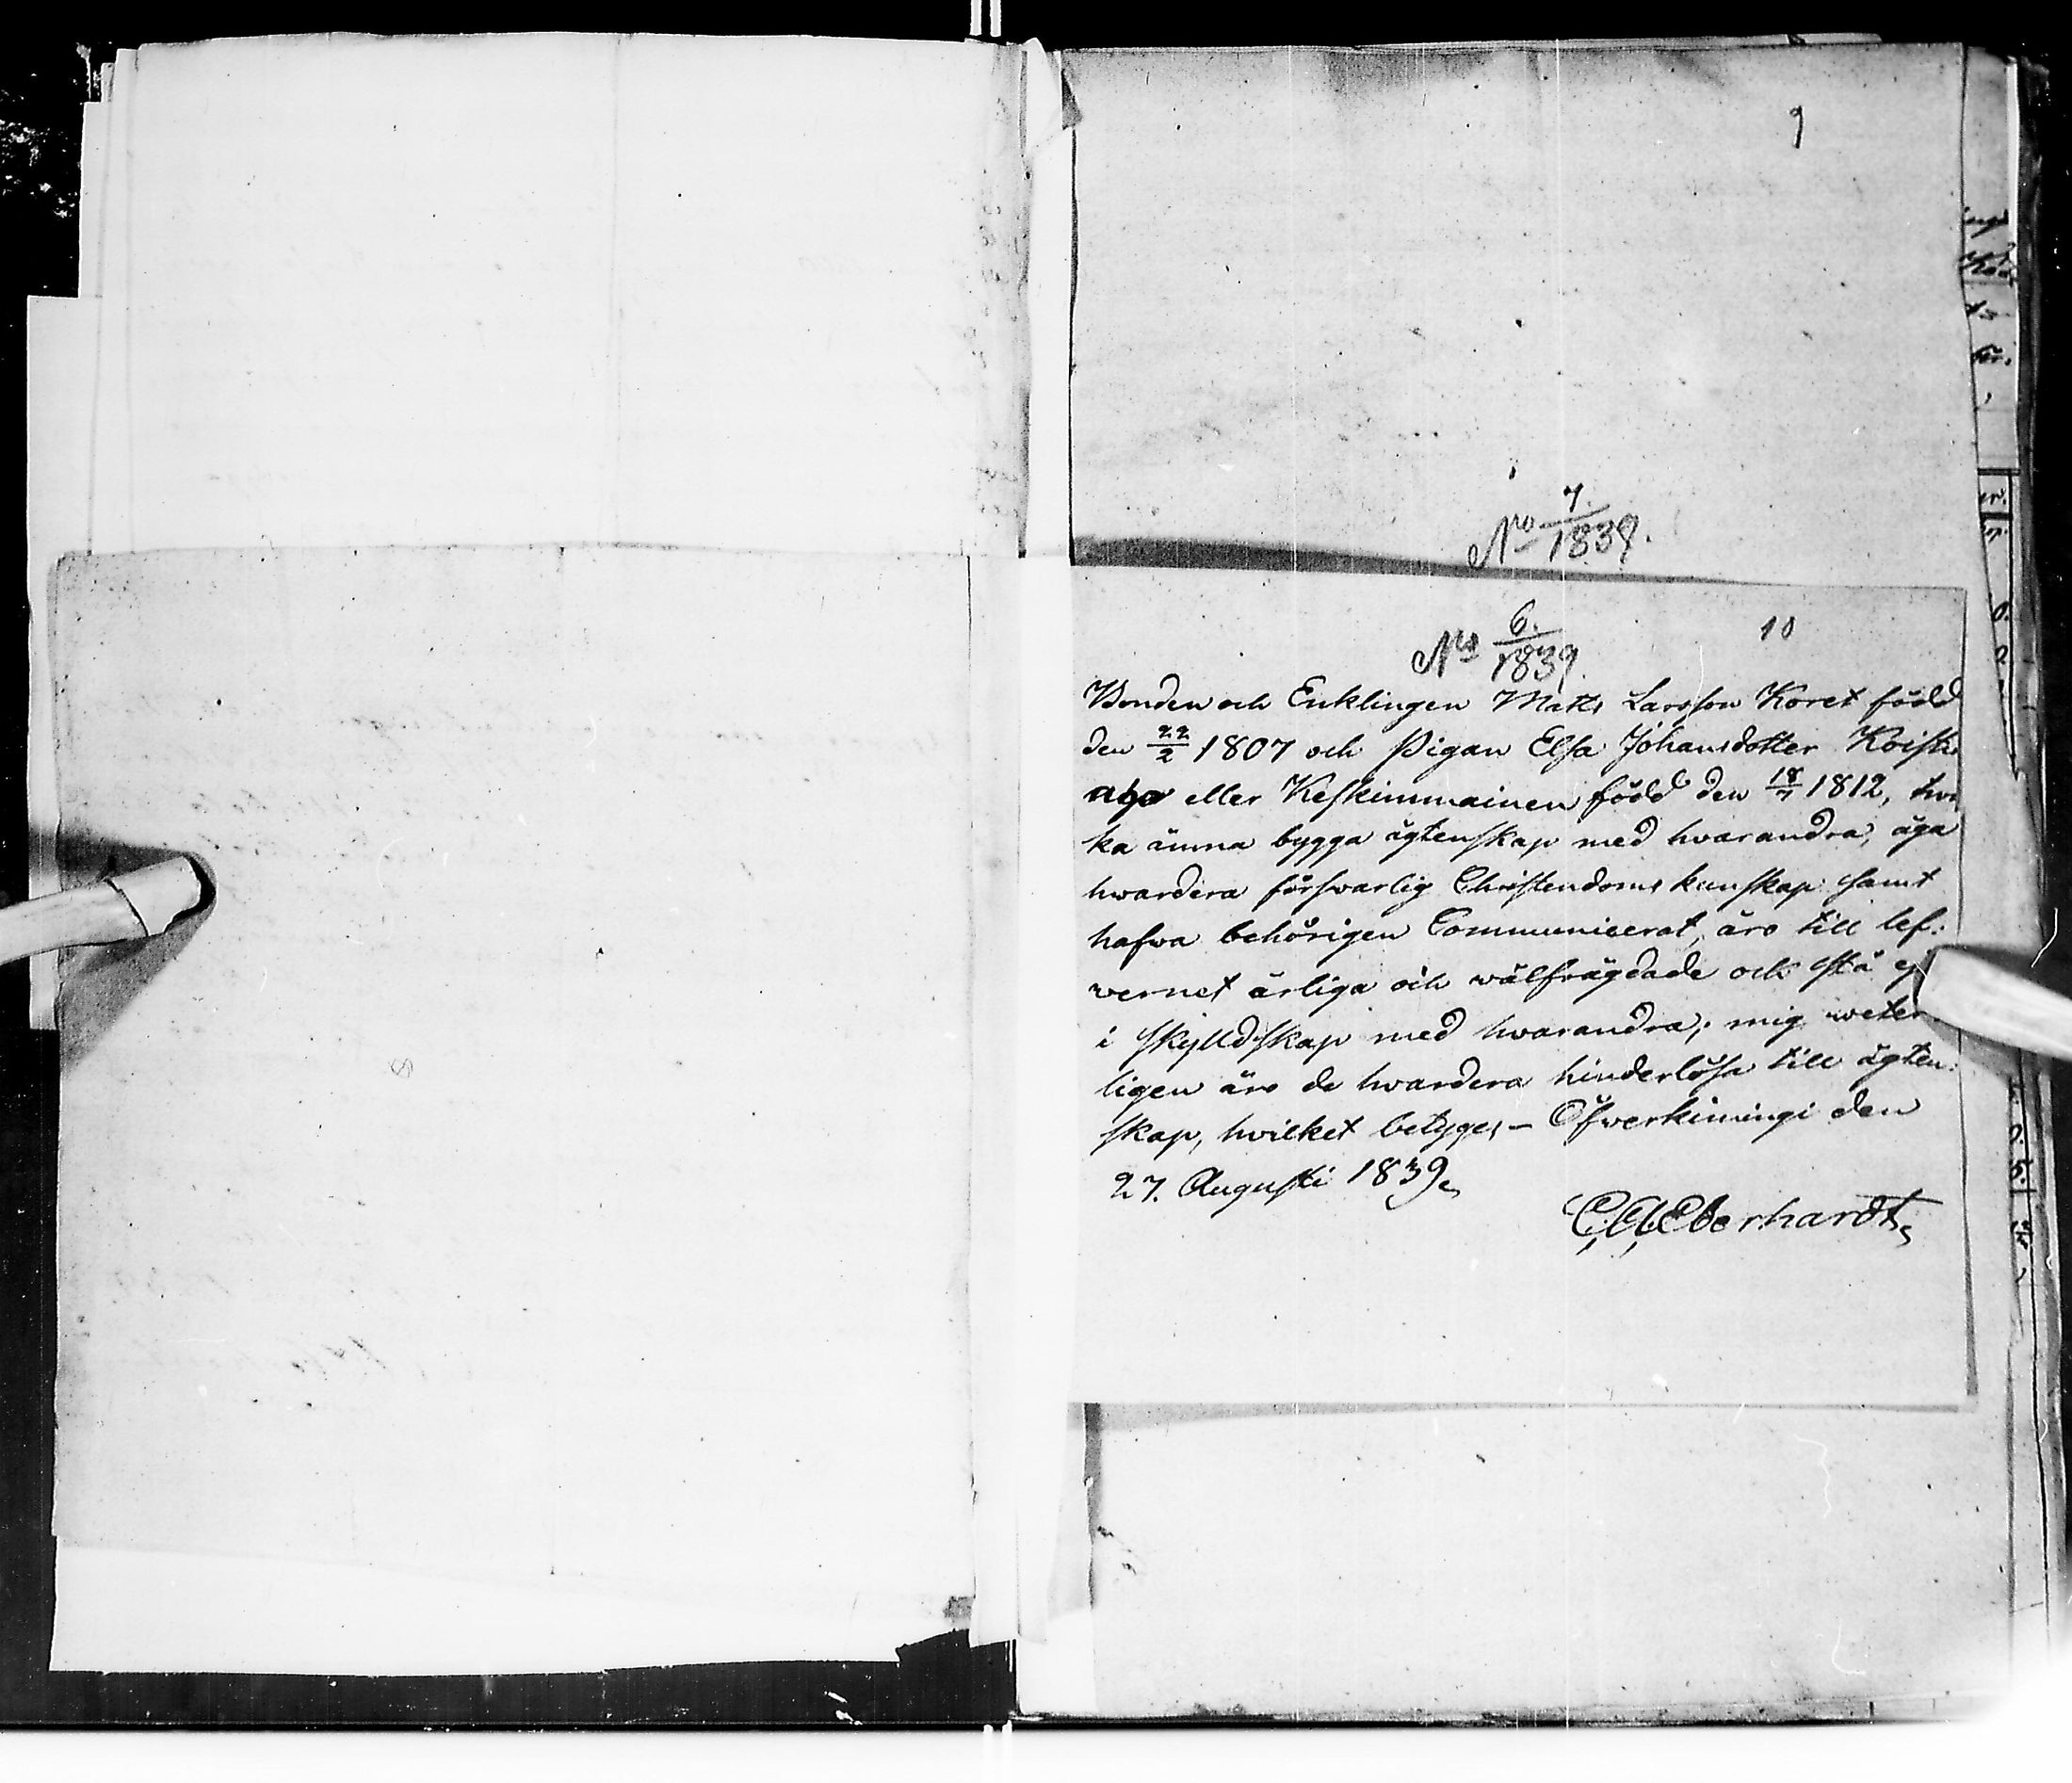 9
No 7/1839.
No 6./1839.
10
Bonden och Enklingen Matts Larsson Koret född
den 22/2 1807 och Pigan Elsa Johansdotter
eller Keskimmainen född den 18/7 1812,
ka ämna bygga ägtenskap med hvarandra, äga
hwardera förswarlig Christendoms kunskap samt
hafwa behörigen Communicerat, äro till lef:
wernet ärliga och wälfrägdade och stå ej
i skylldskap med hvarandra; mig veter
ligen äro de hwardera hinderlösa till ägten:
skap, hvilket betyges – Öfwerkimingi den
27. Augusti 1839.
C. A. Eberhardt.